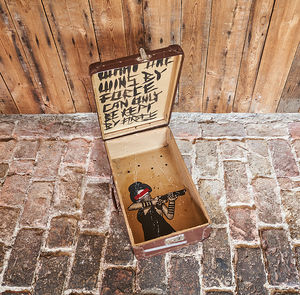 WHAT ONE
WINS BY
FORCE
CAN ONLY
BE KEPT
BY FORCE